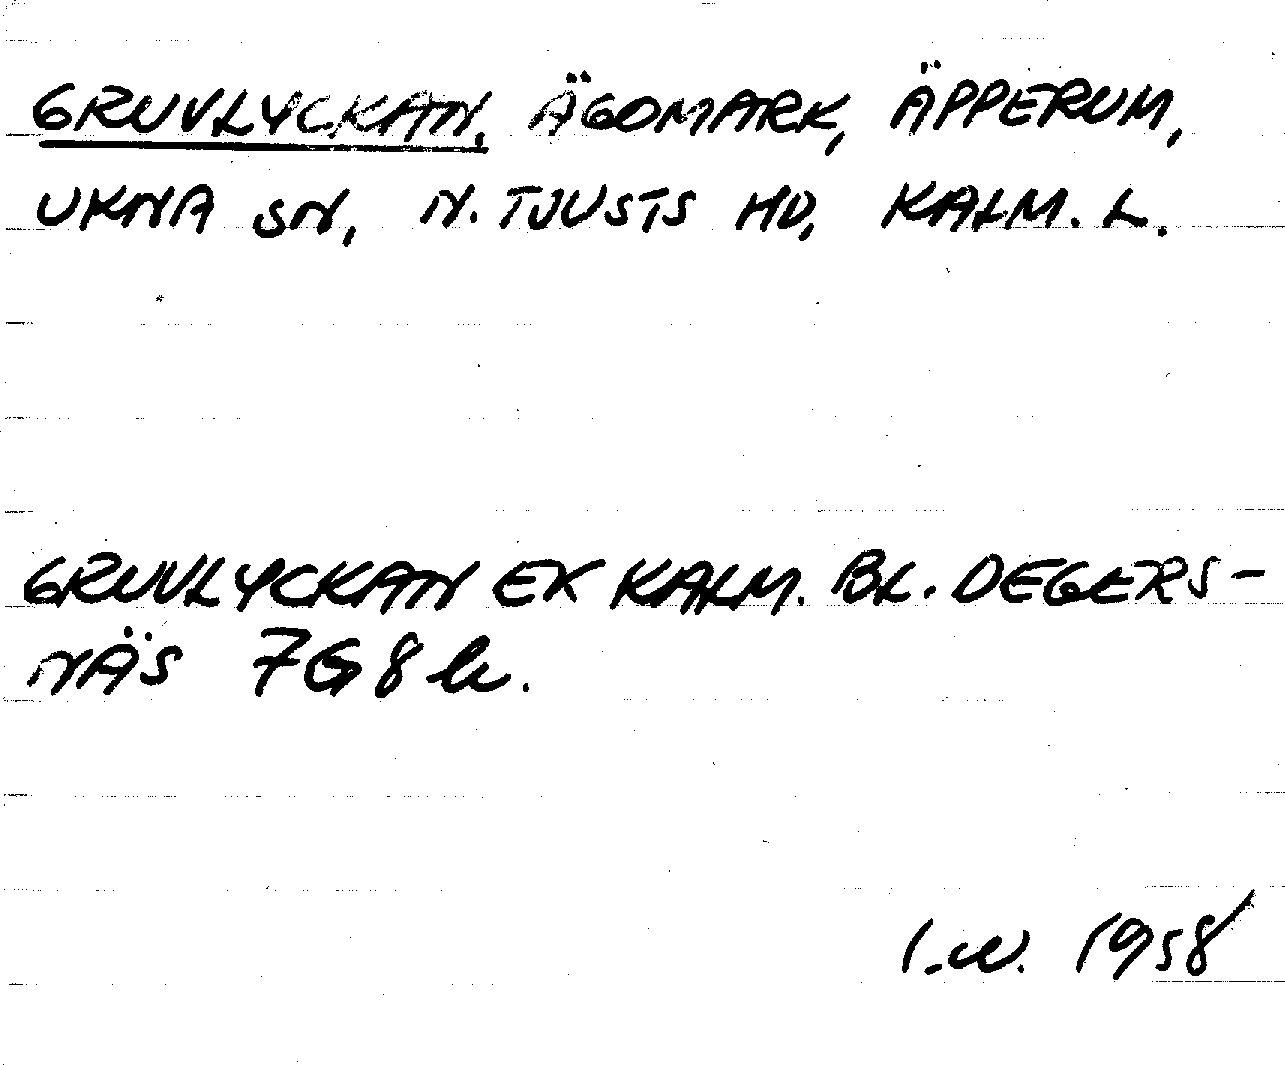 GRUVLYCKAN, ÄGOMARK, ÄPPERUM,
UKNA SN, N. TJUSTS HD, KALM. L.
GRUVLYCKAN EK KALM. BL. DEGERS-
NÄS 7G8h.
I.W. 1958